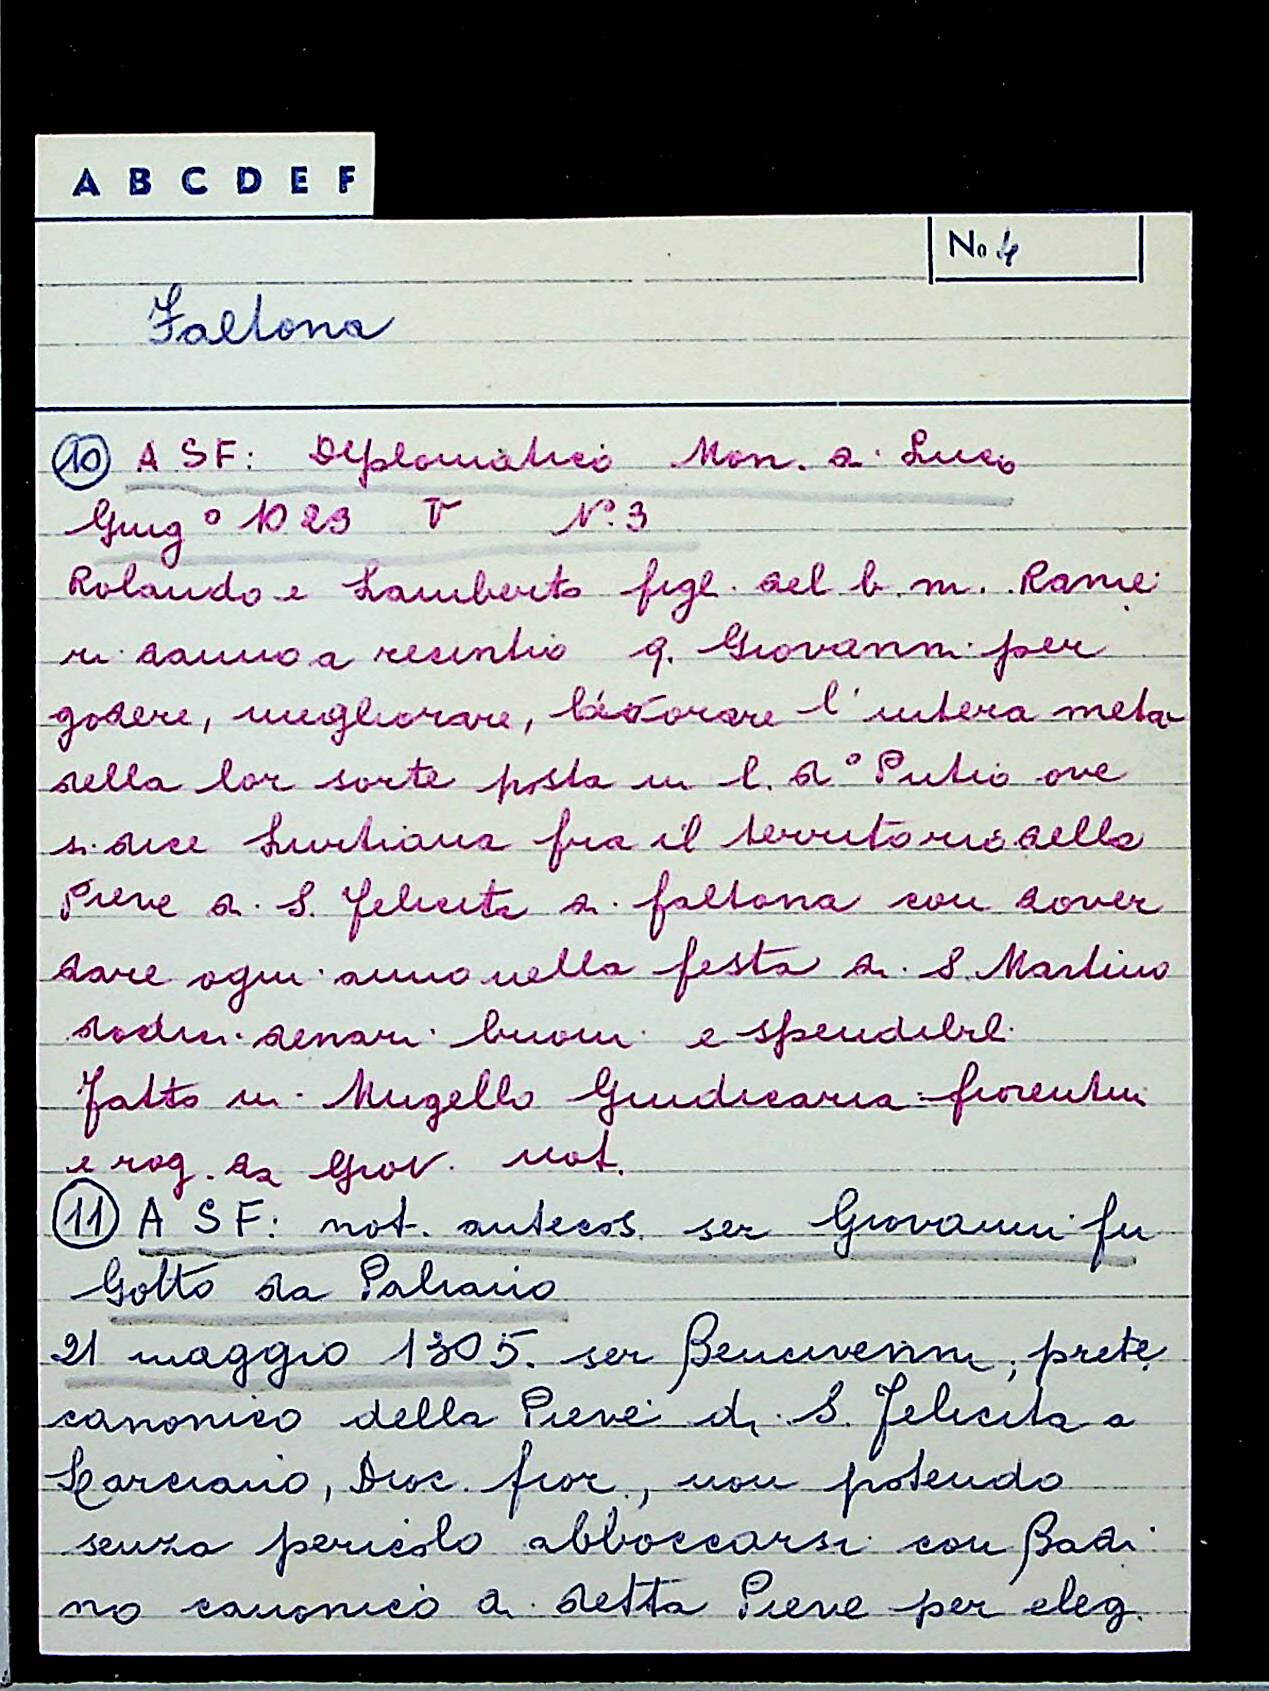 A B C D E F
No 4
Faltona
10 A S F: Diplomatico Mon. di Luco
Giug° 1023 V N. 3
Rolando e Lamberto figl. del b. m. Ranie
ri danno a resintio q. Giovanni per
godere, migliorare, lavorare l'intera meta
della lor sorte posta in l. d° Putio ove
si dice Lurtiana fra il territorio della
Pieve di S. Felicita di Faltona con dover
dare ogni anno nella festa di S. Martino
dodici denari buoni e spendibili
Fatto in Mugello Giudicaria fiorentin
e rog. da Giov. not.
11 A S F: not. antecos. ser Giovanni fu
Gotto da Paliano
21 maggio 1305. ser Bencivenni, prete,
canonico della Pieve di S. Felicita a
Larciano, Dioc. fior., non potendo
senza pericolo abboccarsi con Badi
no canonico di detta Pieve per eleg.